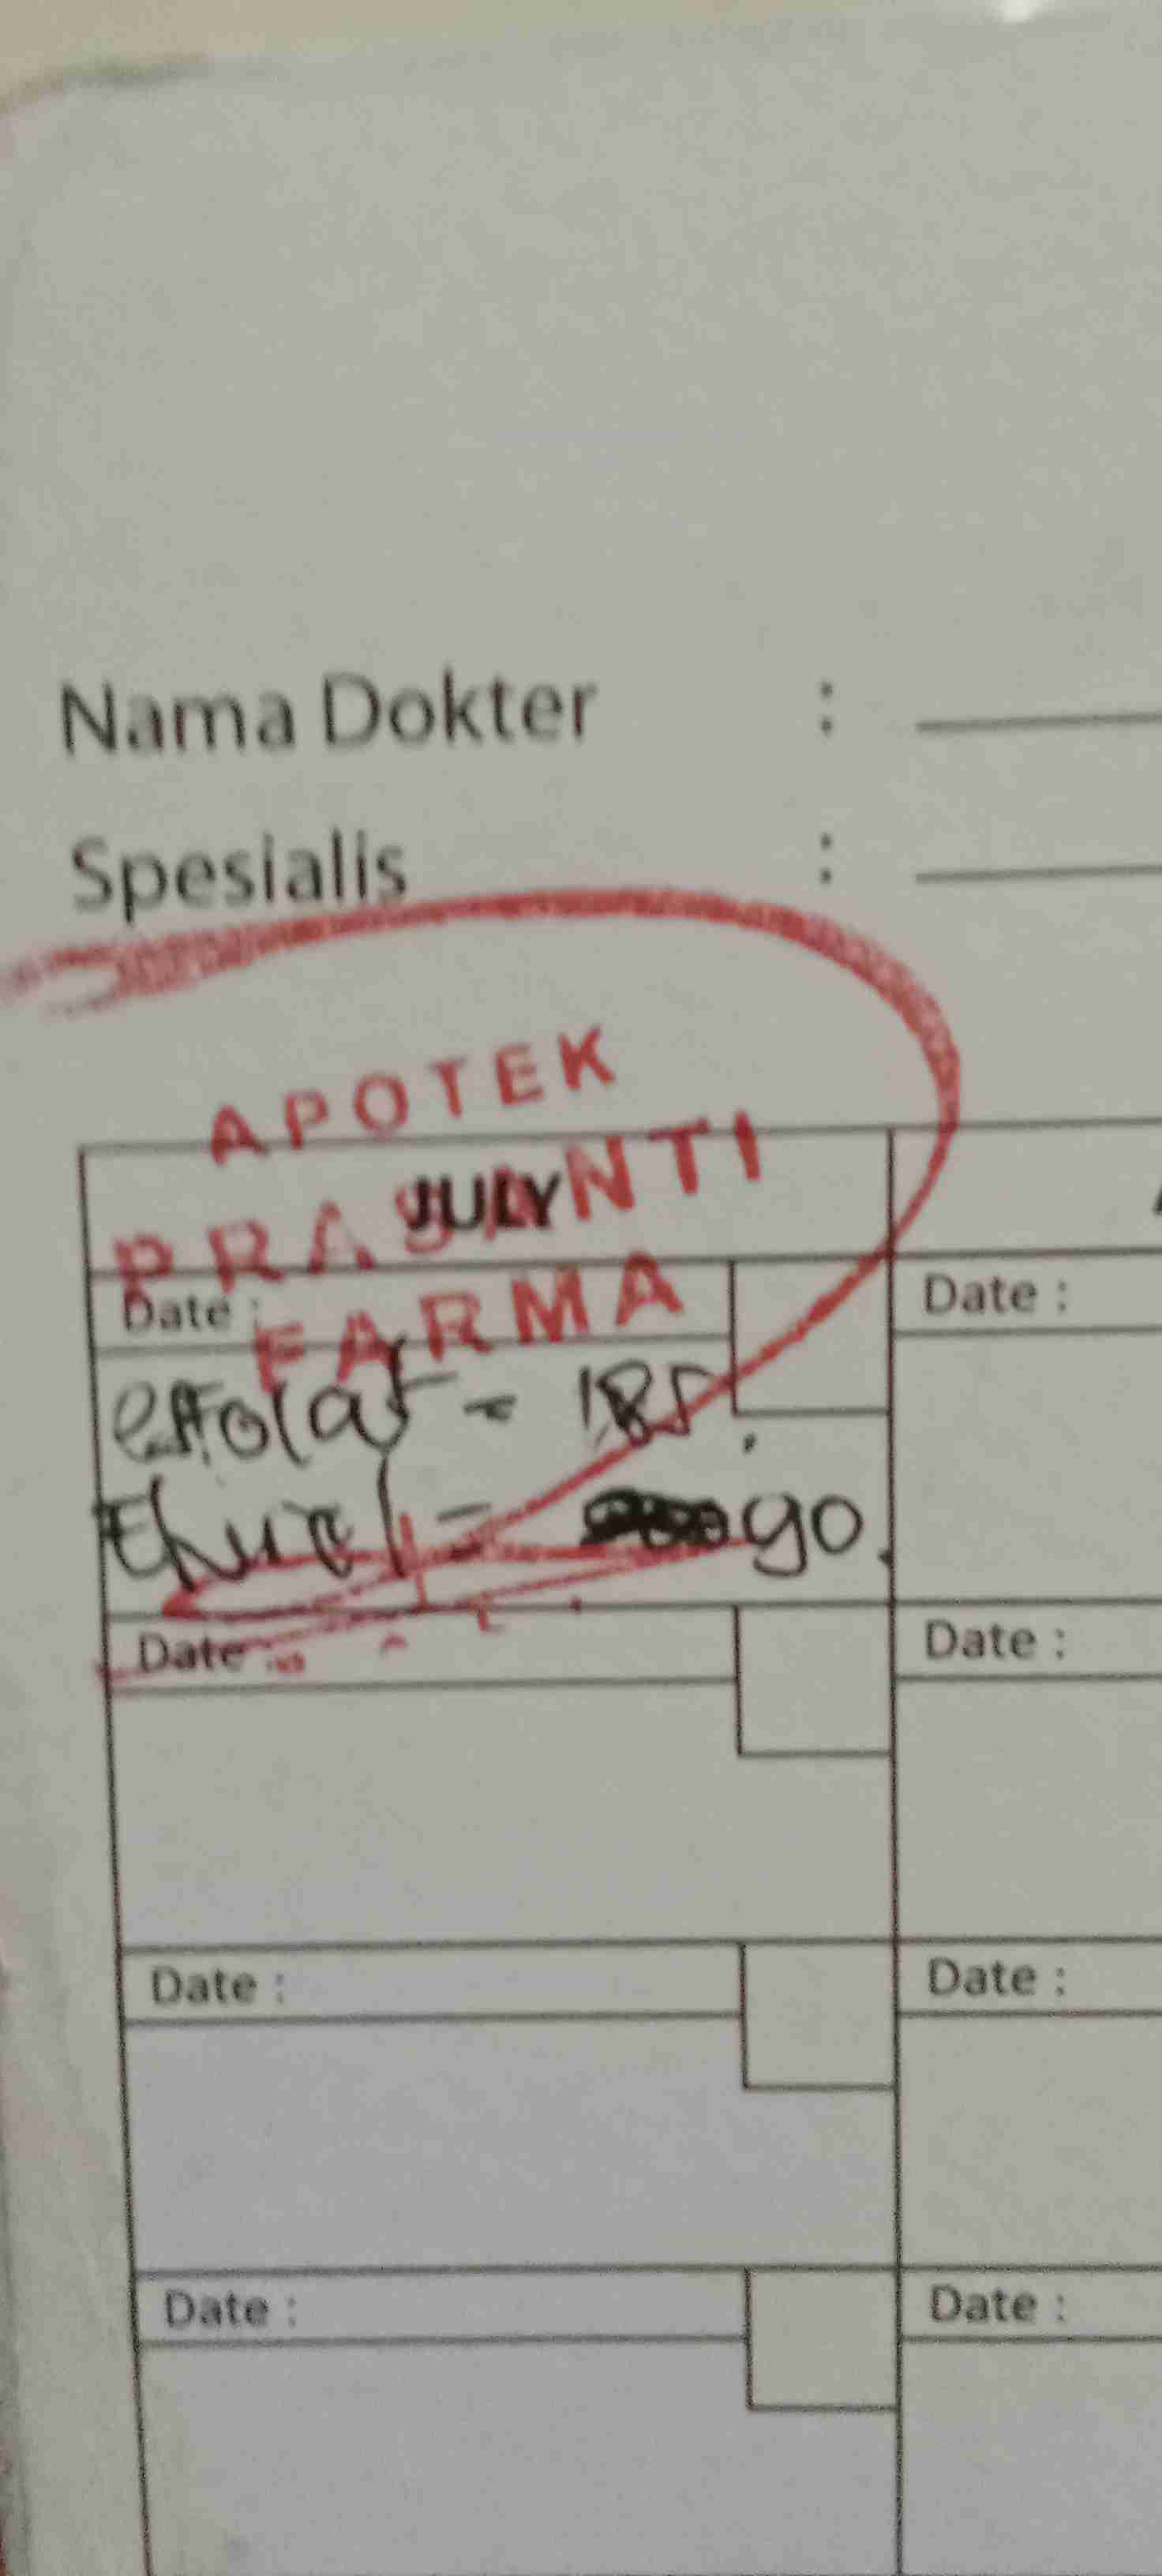 Nama Dokter :
Spesialis :
APOTEK
PRASANTI
FARMA
JULY
Date :
Date :
= 185.
= 90.
Date :
Date :
Date :
Date :
Date :
Date :